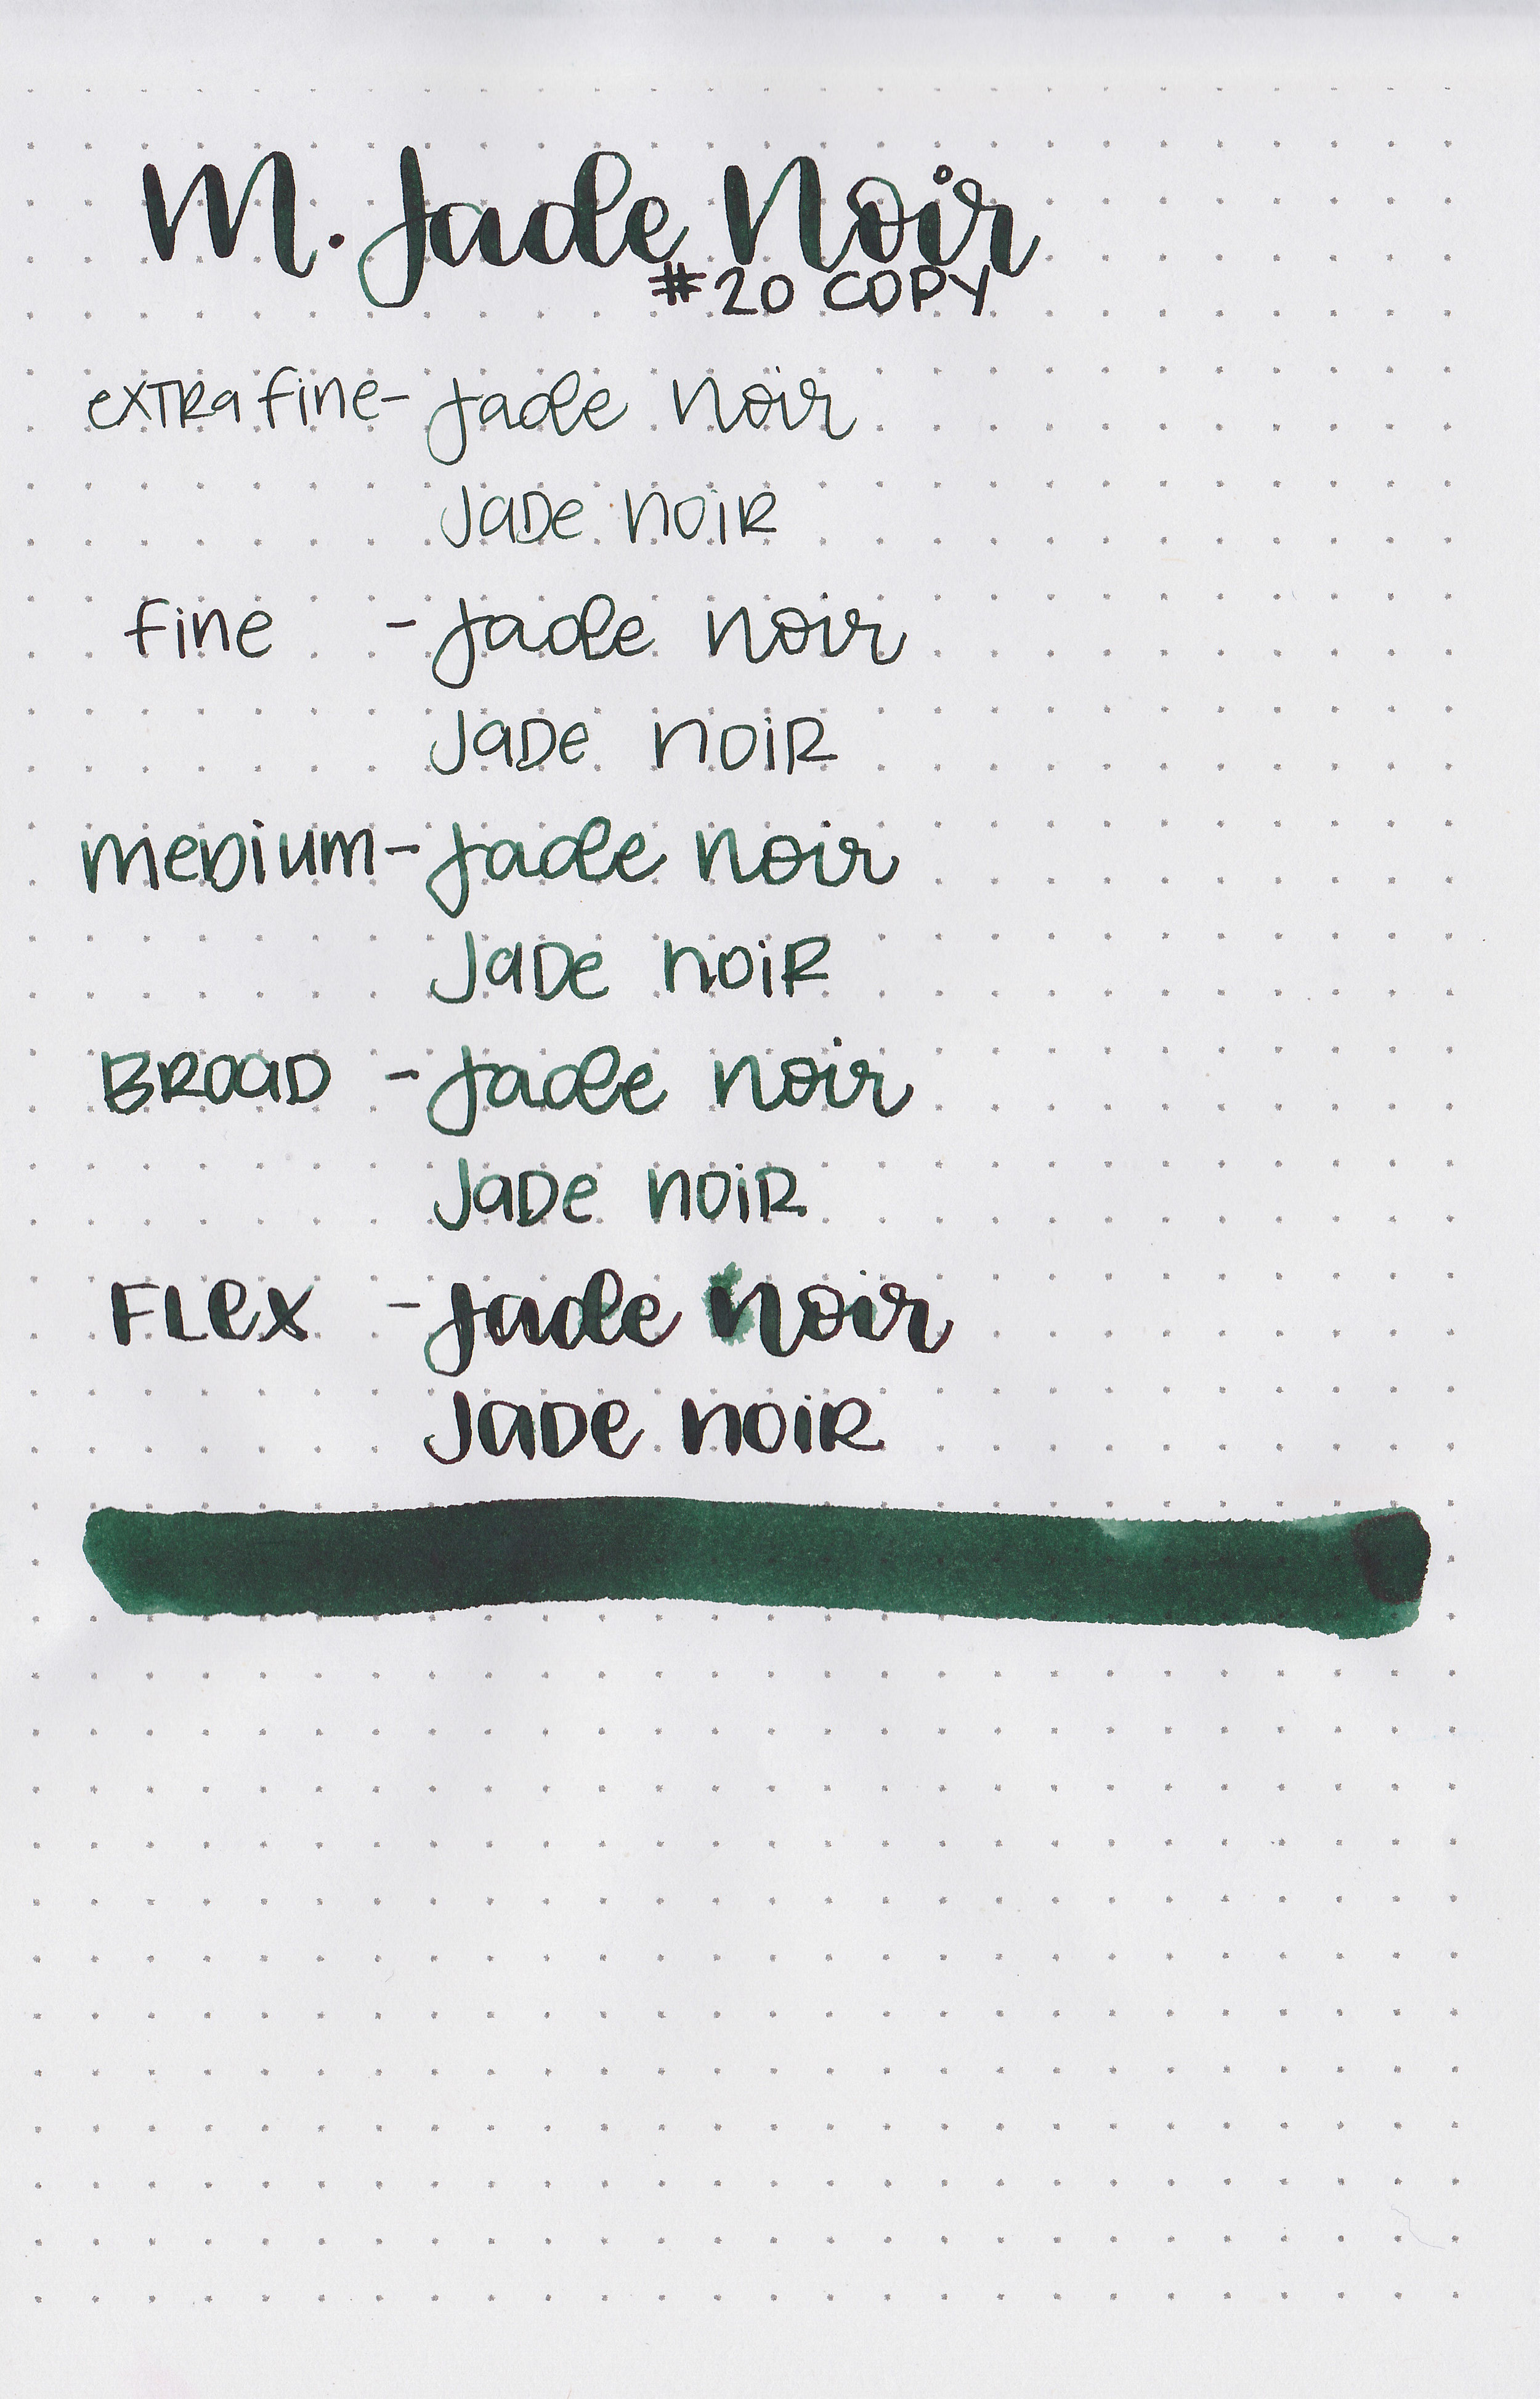 M. Jade Noir
#20 COPY
extra fine - Jade noir
Jade noir
fine - Jade noir
Jade noir
medium - Jade noir
Jade noir
Broad - Jade noir
Jade noir
Flex - Jade noir
Jade noir